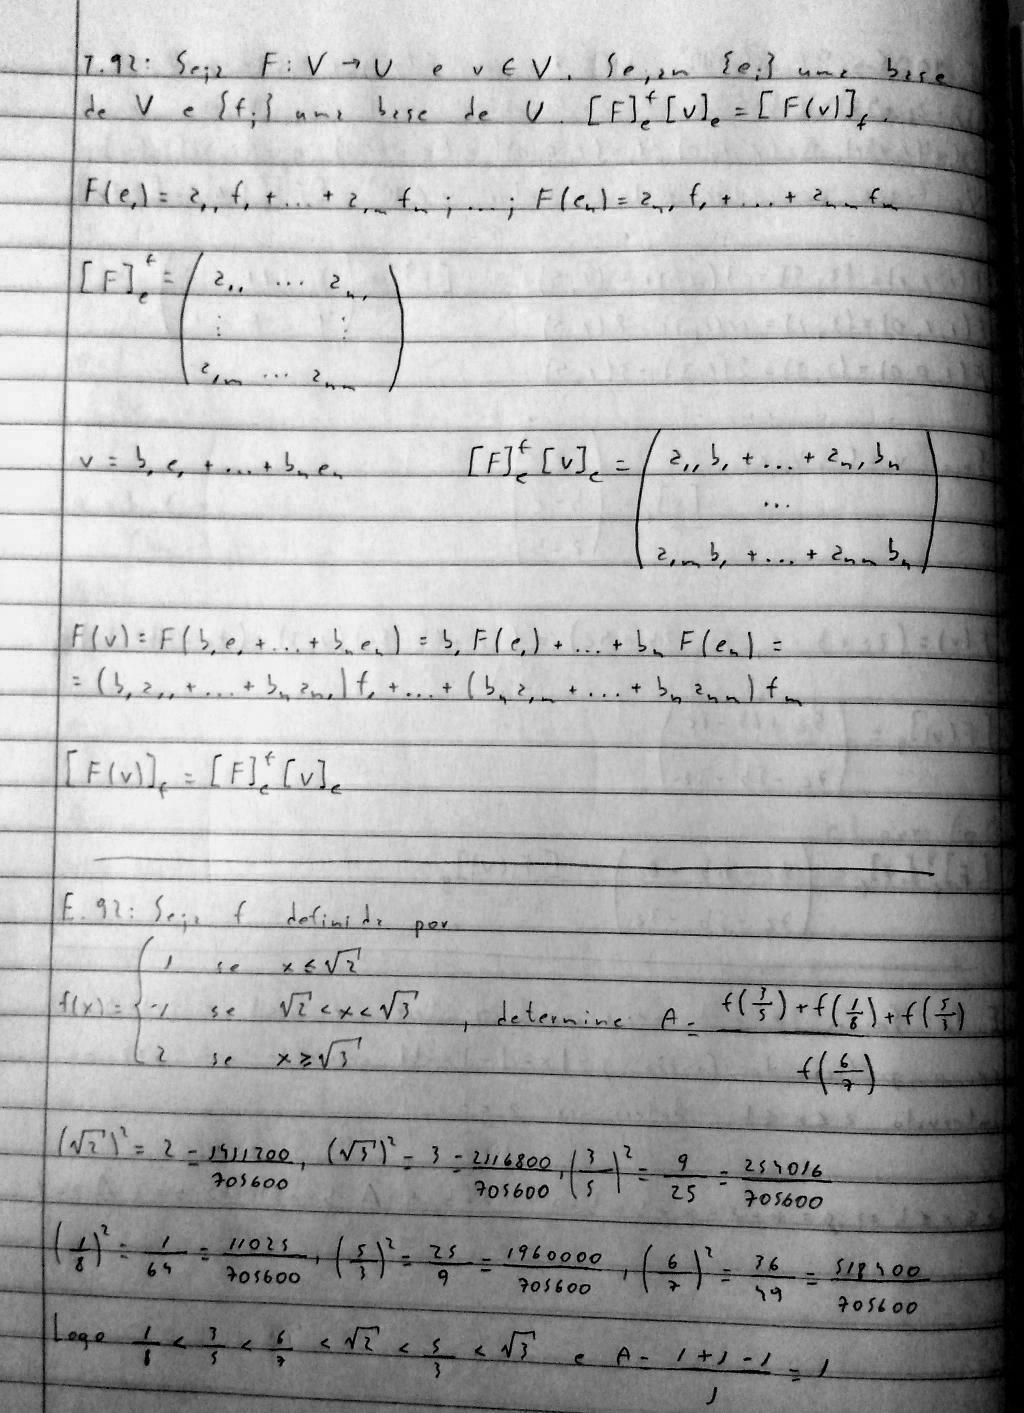 T.92: Seja F: V → U e v ∈ V. Sejam {eᵢ} uma base
de V e {fⱼ} uma base de U. [F]ₑᶠ [v]ₑ = [F(v)]_f.
F(e₁) = a₁₁ f₁ + ... + a₁ₘ fₘ ; ... ; F(eₙ) = aₙ₁ f₁ + ... + aₙₘ fₘ
[F]ₑᶠ = ( a₁₁ ... aₙ₁
⋮ ⋮
a₁ₘ ... aₙₘ )
v = b₁ e₁ + ... + bₙ eₙ [F]ₑᶠ [v]ₑ = ( a₁₁ b₁ + ... + aₙ₁ bₙ
...
a₁ₘ b₁ + ... + aₙₘ bₙ )
F(v) = F(b₁ e₁ + ... + bₙ eₙ) = b₁ F(e₁) + ... + bₙ F(eₙ) =
= (b₁ a₁₁ + ... + bₙ aₙ₁) f₁ + ... + (bₙ a₁ₘ + ... + bₙ aₙₘ) fₘ
[F(v)]_f = [F]ₑᶠ [v]ₑ
E.92: Seja f definida por
f(x) = { 1 se x ≤ √2
-1 se √2 < x < √3 , determine A = (f(3/5) + f(1/8) + f(5/3)) / f(6/7)
2 se x ≥ √3
(√2)² = 2 = 1411200/705600, (√3)² = 3 = 2116800/705600, (3/5)² = 9/25 = 254016/705600
(1/8)² = 1/64 = 11025/705600, (5/3)² = 25/9 = 1960000/705600, (6/7)² = 36/49 = 518400/705600
Logo 1/8 < 3/5 < 6/7 < √2 < 5/3 < √3 e A = (1 + 1 - 1)/1 = 1